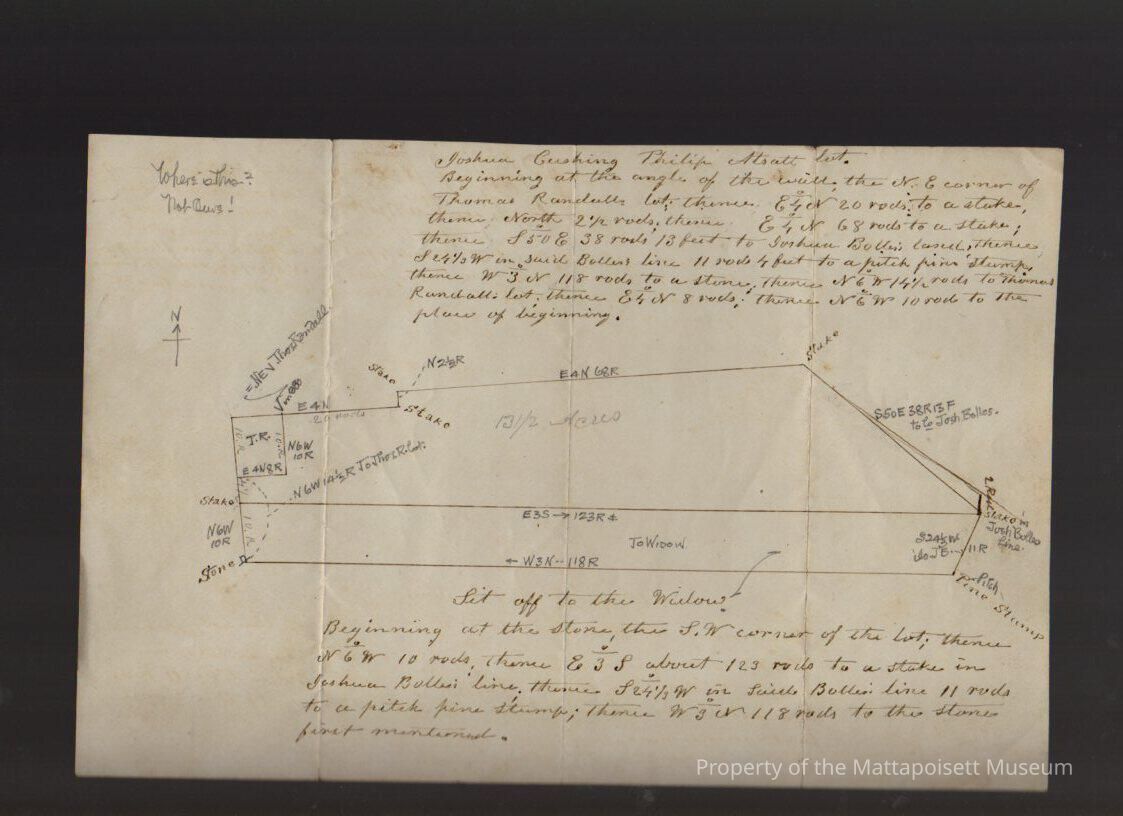 Where is this?
Not Ours!
Joshua Cushing Philip Atsatt lot.
Beginning at the angle of the wall, the N. E corner of
Thomas Randalls lot; thence E 4° N 20 rods, to a stake,
thence North 2 1/2 rods; thence E 4° N 68 rods to a stake;
thence S 50° E 38 rods 13 feet to Joshua Bolles land, thence
S 24 1/3° W in said Bolles's line 11 rods 4 feet to a pitch pine stump,
thence W 3° N 118 rods to a stone, thence N 6° W 14 1/2 rods to Thomas
Randalls lot; thence E 4° N 8 rods; thence N 6° W 10 rods to the
place of beginning.
N
Thos Randall
Stake
N 2 1/2 R
Stake
E4N 68R
Stake
E4N
20 rods
13 1/2 Acres
S50E 38R 13F
to Josh Bolles.
T.R.
10 R
N6W
10R
E4N8R
N6W 14 1/2 R To Thos R. Lot.
Stake
N6W
10R
10 R.
E3S → 123R ±
2 Rods
Stake in
Josh Bolles
Line.
S24 1/3 W
11R
To Widow
← W3N - 118R
Stone
Pitch
Pine Stump
Set off to the Widow.
Beginning at the stone, the S. W corner of the lot; thence
N 6° W 10 rods, thence E 3° S about 123 rods to a stake in
Joshua Bolles's line, thence S 24 1/3° W in said Bolles's line 11 rods
to a pitch pine stump; thence W 3° N 118 rods to the stone
first mentioned.
Property of the Mattapoisett Museum